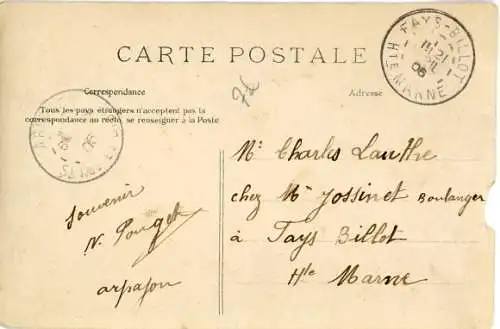 CARTE POSTALE
FAYS-BILLOT
21
06
Hte MARNE
Correspondance
Adresse
Tous les pays étrangers n'acceptent pas la
correspondance au recto, se renseigner à la Poste
06
Mr Charles Lauthe
chez Mr Jossinet Boulanger
à Fays Billot
Hte Marne
Souvenir
N. Pouget
arpajon